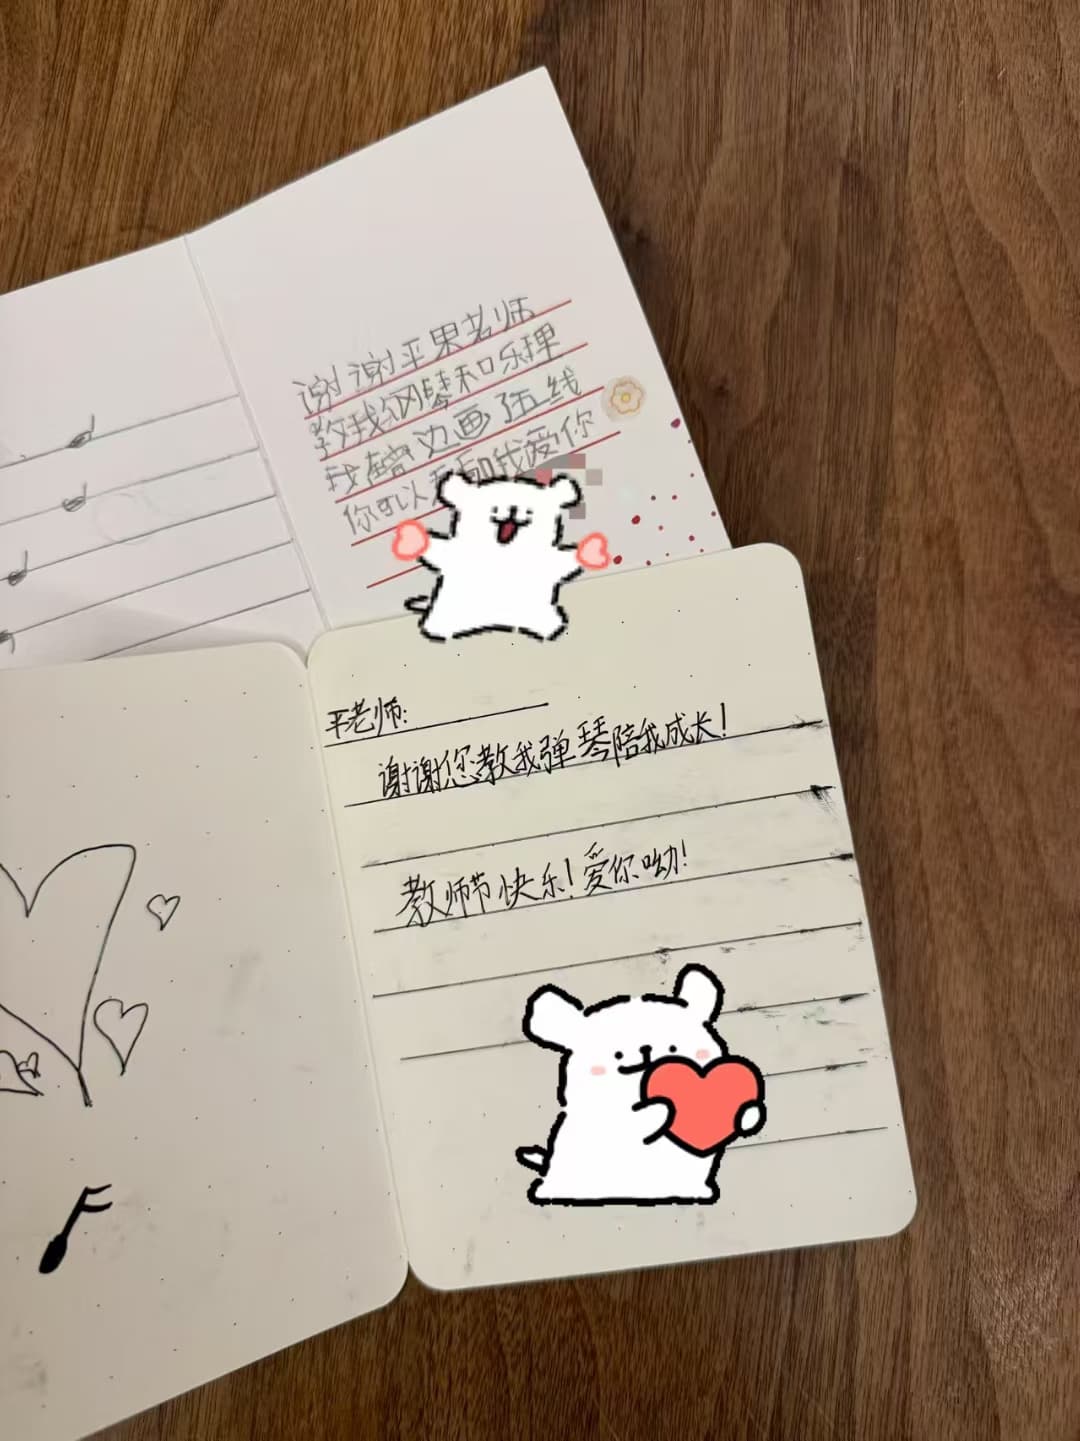 谢谢平果老师
教我钢琴和乐理
我在旁边画了五线
你可以看 我爱你
平老师:
谢谢您教我弹琴陪我成长!
教师节快乐!爱你呦!